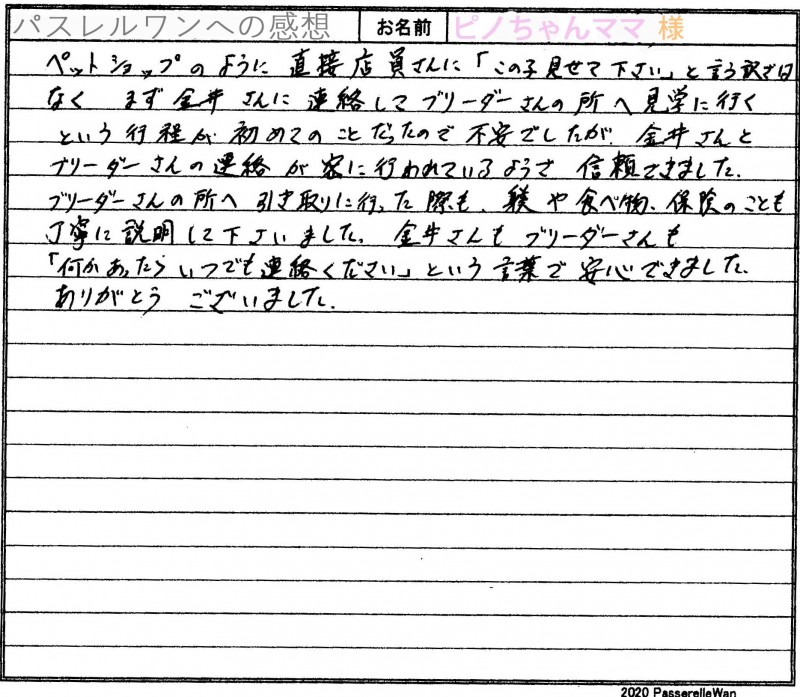 パスレルワンへの感想 お名前 ピノちゃんママ 様
ペットショップのように 直接店員さんに「この子見せて下さい」と言う訳では
なく まず金井さんに連絡してブリーダーさんの所へ見学に行く
という行程が初めてのことだったので不安でしたが、金井さんと
ブリーダーさんの連絡が密に行われているようで 信頼できました。
ブリーダーさんの所へ引き取りに行った際も、躾や食べ物、保険のことも
丁寧に説明して下さいました。金井さんもブリーダーさんも
「何かあったらいつでも連絡ください」という言葉で安心できました。
ありがとう ございました。
2020 PasserelleWan